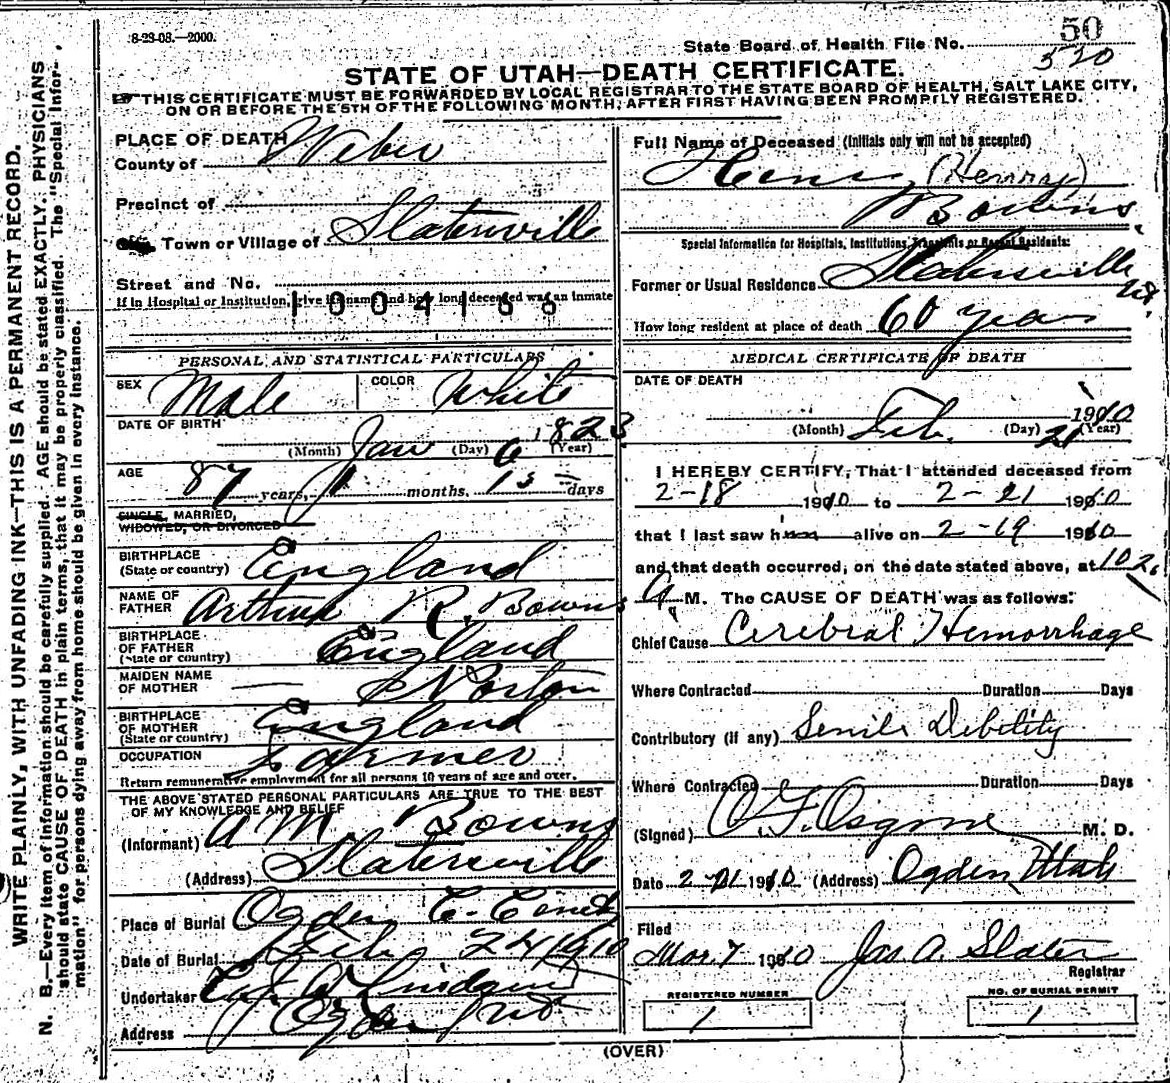 8-23-08.—2000.
50
State Board of Health File No.
520
STATE OF UTAH—DEATH CERTIFICATE.
THIS CERTIFICATE MUST BE FORWARDED BY LOCAL REGISTRAR TO THE STATE BOARD OF HEALTH, SALT LAKE CITY,
ON OR BEFORE THE 5TH OF THE FOLLOWING MONTH, AFTER FIRST HAVING BEEN PROMPTLY REGISTERED.
WRITE PLAINLY, WITH UNFADING INK—THIS IS A PERMANENT RECORD.
N. B.—Every item of information should be carefully supplied. AGE should be stated EXACTLY. PHYSICIANS
should state CAUSE OF DEATH in plain terms, that it may be properly classified. The "Special Infor-
mation" for persons dying away from home should be given in every instance.
PLACE OF DEATH
County of Weber
Precinct of
Town or Village of Slaterville
Street and No.
If in Hospital or Institution, give its name and how long deceased was an inmate
1004166
PERSONAL AND STATISTICAL PARTICULARS
SEX Male COLOR White
DATE OF BIRTH
(Month) Jan (Day) 6 1823 (Year)
AGE
87 years, 1 months, 15 days
SINGLE, MARRIED,
WIDOWED, OR DIVORCED
BIRTHPLACE
(State or country) England
NAME OF
FATHER Arthur R. Bowns
BIRTHPLACE
OF FATHER
(State or country) England
MAIDEN NAME
OF MOTHER — Norton
BIRTHPLACE
OF MOTHER
(State or country) England
OCCUPATION Farmer
Return remunerative employment for all persons 10 years of age and over.
THE ABOVE STATED PERSONAL PARTICULARS ARE TRUE TO THE BEST
OF MY KNOWLEDGE AND BELIEF
(Informant) A M Bowns
(Address) Slatersville
Place of Burial Ogden C. Cemety
Date of Burial Feb 24 1910
Undertaker
Address Ogden Ut
Full Name of Deceased (Initials only will not be accepted)
Henry (Henry)
Bowns
Special Information for Hospitals, Institutions, Transients or Recent Residents:
Former or Usual Residence Slatersville
How long resident at place of death 60 years
MEDICAL CERTIFICATE OF DEATH
DATE OF DEATH
(Month) Feb. (Day) 21 1910 (Year)
I HEREBY CERTIFY, That I attended deceased from
2-18 1910 to 2-21 1910
that I last saw him alive on 2-19 1910
and that death occurred, on the date stated above, at 10
A M. The CAUSE OF DEATH was as follows:
Chief Cause Cerebral Hemorrhage
Where Contracted Duration Days
Contributory (if any) Senile Debility
Where Contracted Duration Days
(Signed) O. F. Osgood M. D.
Date 2-21 1910 (Address) Ogden, Utah
Filed
Mar. 7 1910 Jas A. Slater
Registrar
REGISTERED NUMBER
1
NO. OF BURIAL PERMIT
1
(OVER)